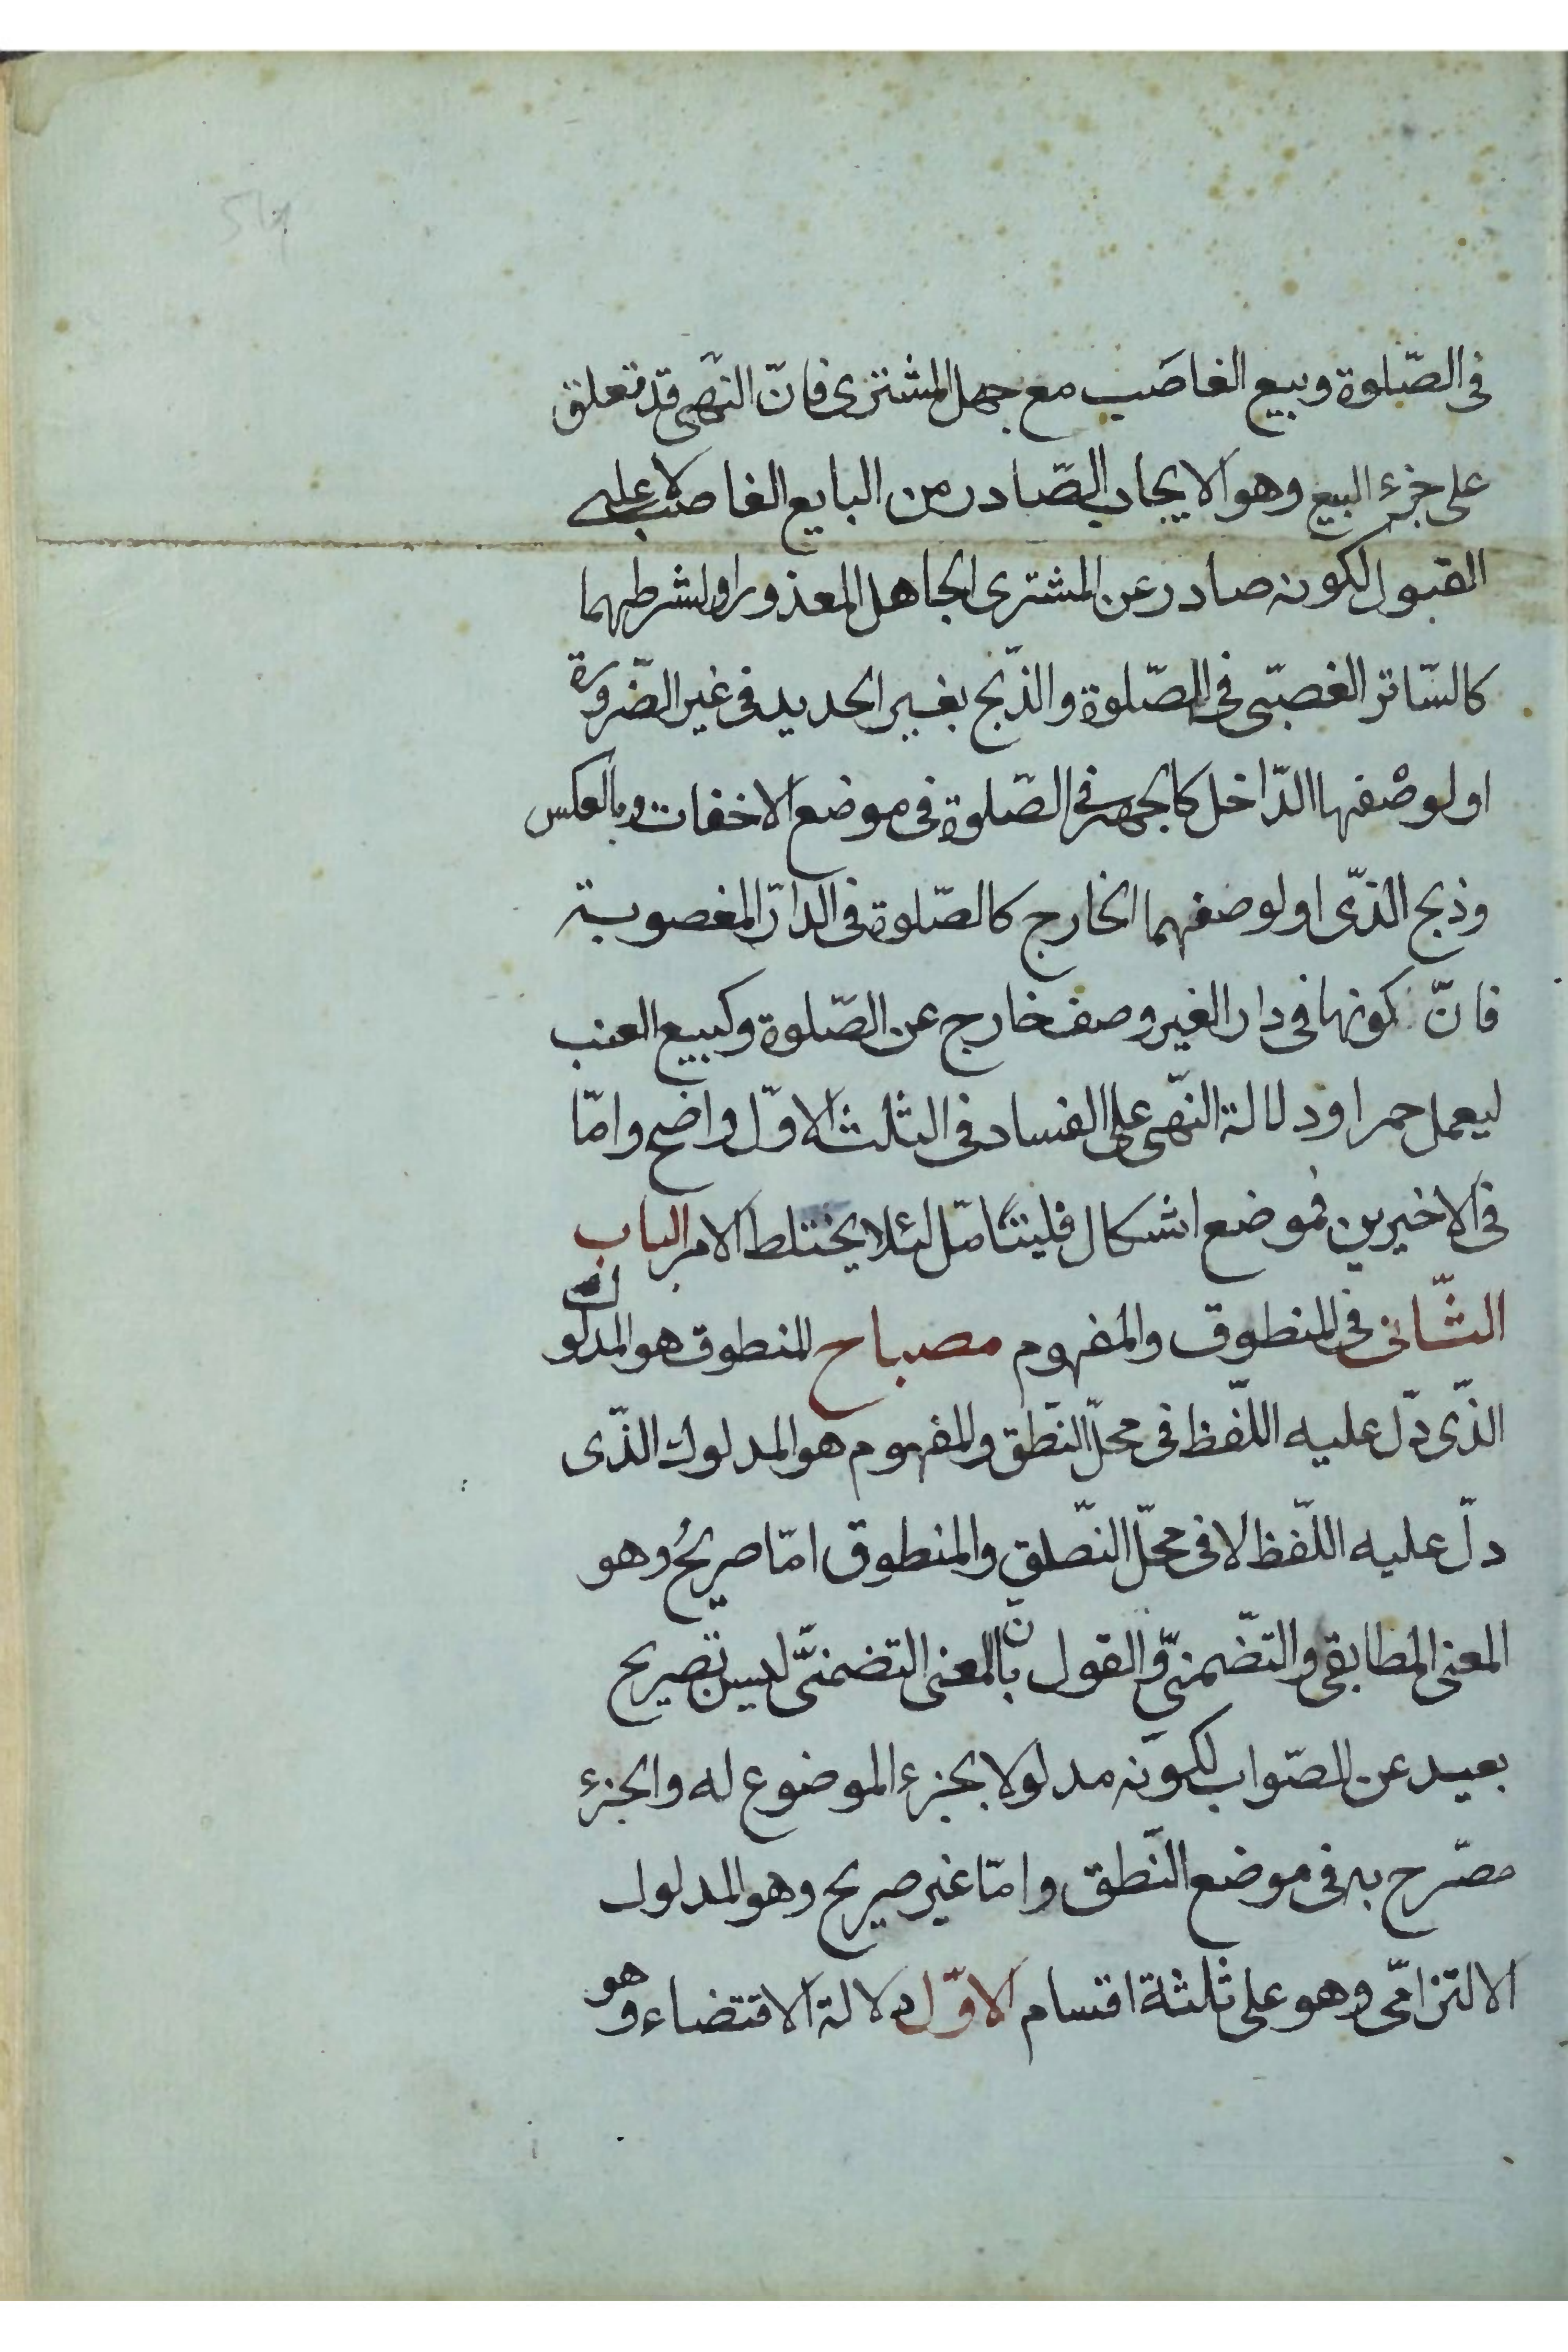 فى الصّلوة وبيع الغاصَب مع جهل المشترى فانّ النهّى قد تعلق
على جزء البيع وهو الايجاب الصّادر من البايع الغاصب لا على
القبول لكونه صادر عن المشترى الجاهل المعذور او لشرطهما
كالسّاتر الغصبّى فى الصّلوة والذّبح بغير الحديد فى غير الضّرورة
او لوصْفهما الدّاخل كالجهر فى الصّلوة فى موضع الاخفات وبالعكس
وذبح الذّى او لوصفهما الخارج كالصّلوة فى الدّار المغصوبة
فانّ كونها فى دار الغير وصف خارج عن الصّلوة وكبيع العنب
ليعمل خمرا ودلالة النّهى على الفساد فى الثلث الاوّل واضح وامّا
فى الاخيرين فموضع اشكال فليتّامّل لئلا يختلط الامر الباب
الثّانى فى المنطوق والمفهوم مصباح المنطوق هو المدلول
الذّى دّل عليه اللّفظ فى محلّ النّطق والمفهوم هو المدلول الذّى
دلّ عليه اللّفظ لا فى محلّ النّطق والمنطوق امّا صريحُ وهو
المعنى المطابقى والتّضمنىّ والقول بانّ المعنى التضمنىّ ليس بصريح
بعيد عن الصّواب لكونه مدلولا بجزء الموضوع له والجزء
مصّرح به فى موضع النّطق وامّا غير صريح وهو المدلول
الالتزامّى وهو على ثلثة اقسام الاوّل دلالة الاقتضاء وهو